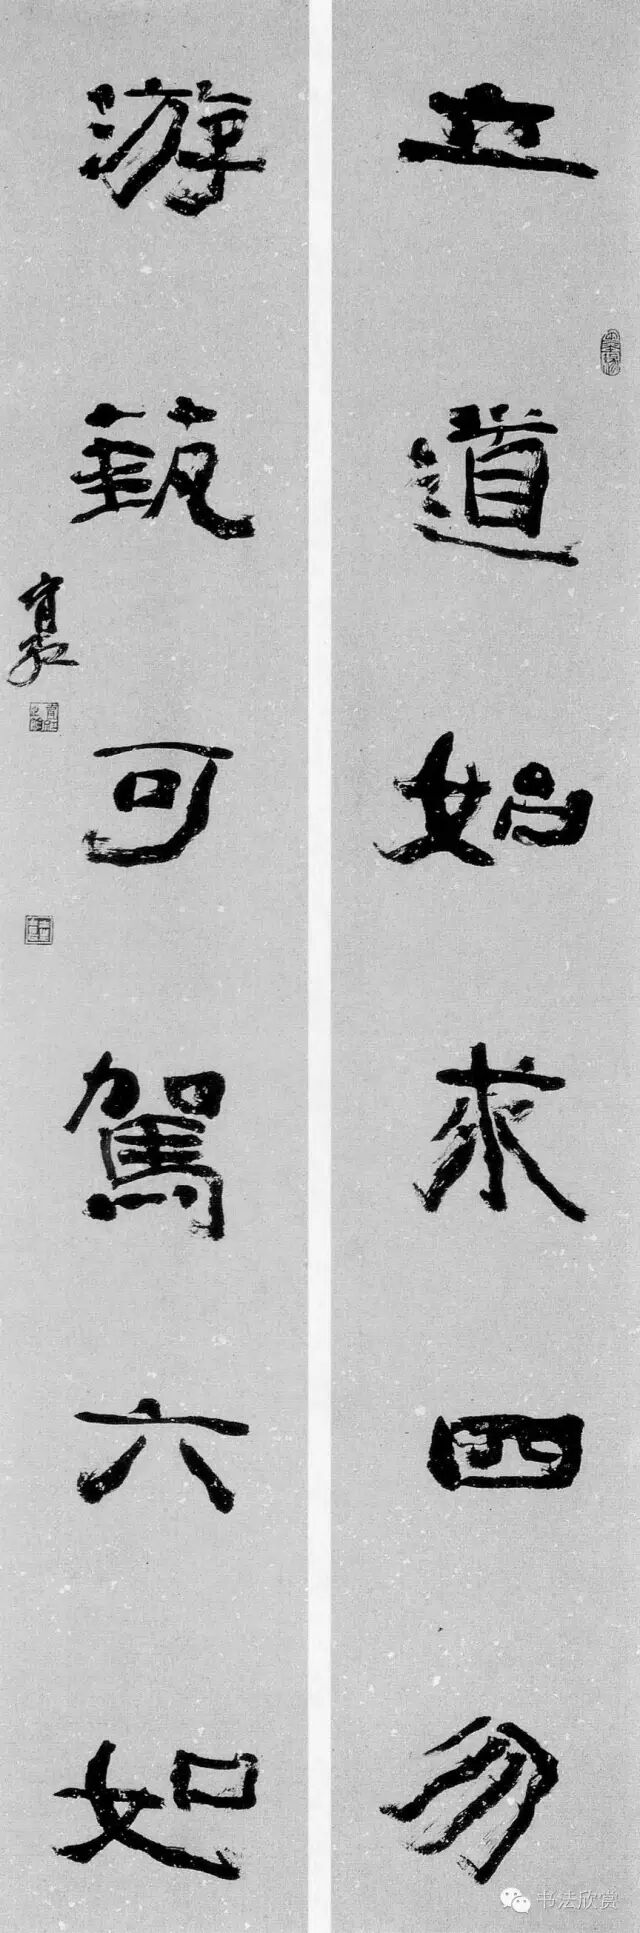 立道始求四勿
游藝可駕六如
书法欣赏